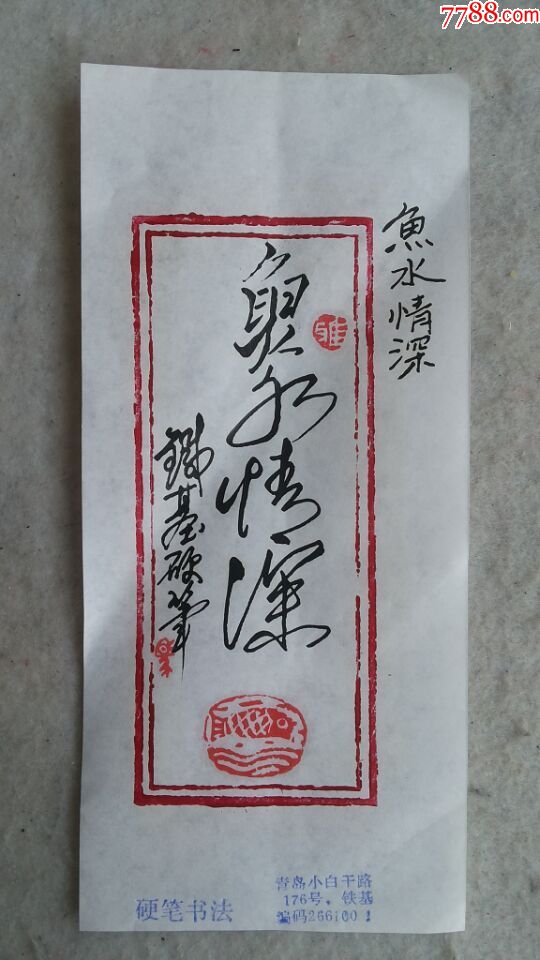 7788.com
魚水情深
魚水情深
雅
鐵基硬筆
硬笔书法
青岛小白干路
176号。铁基
编码266100